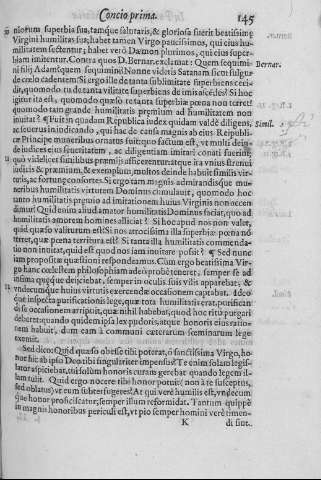 Concio prima. 145
niorum superbia sua, tamque salutaris, & gloriosa fuerit beatissimę
Virgini humilitas sua, habet tamen Virgo paucissimos, qui eius hu-
militatem sectentur; habet verò Dæmon plurimos, qui eius super-
biam imitentur. Contra quos D. Bernar. exclamat: Quem sequimi-
Bernar.
ni filij Adam? quem sequimini? Nonne vidistis Satanam sicut fulgur
de cœlo cadentem? Si ergo ille de tanta sublimitate superbiens ceci-
dit, quomodo tu de tanta vilitate superbiens de
igitur ita est, quomodo quæso te tanta superbiæ pœna non terret?
quomodo tam grande humilitatis præmium ad humilitatem non
inuitat? ¶ Fuit in quadam Republica iudex quidam valdè diligens,
Simil.
ac seuerus in iudicando, qui hac de causa magnis ab eius Reipubli-
cæ Principe muneribus ornatus fuit: quo factum est, vt multi dein-
de iudices eius seueritatem, ac diligentiam imitari conati fuerint,
quò videlicet similibus præmijs afficerentur: atque ita vnius strenui
iudicis & præmium, & exemplum, multos deinde habuit similis vir-
tutis, ac fortunę consortes. Si ergo tam magnis admirandisque mu-
neribus humilitatis virtutem Dominus cumulauit, quomodo hoc
tanto humilitatis præmio ad imitationem huius Virginis non accen-
dimur? Quid enim aliud amator humilitatis Dominus faciat, quo ad
humilitatis amorem homines alliciat? Si hoc apud nos non valet,
quid quæso valiturum est? Si nos atrocissima illa superbiæ pœna nō
terret, quæ pœna territura est? Si tanta illa humilitatis commenda-
tio non inuitat, quid est quod nos iam inuitare possit? ¶ Sed nunc
iam propositæ quæstioni respondeamus. Cùm ergo beatissima Vir-
go hanc cœlestem philosophiam adeò probè teneret, semper se ad
infima quęque deijciebat, semper in oculis suis vilis apparebat, &
vndecunque huius virtutis exercendæ occasionem captabat. Ideo-
que inspecta purificationis lege, quæ tota humilitatis erat, purifican-
di se occasionem arripuit, quæ nihil habebat, quod hoc ritu purgari
deberet: quando quidem ipsa lex pudoris, atque honoris eius ratio-
nem habuit, dum eam à communi cæterarum fœminarum lege
exemit.
Sed dico: Quid quæso obesse tibi poterat, ô sanctissima Virgo, ho-
nor hic ab ipso Deo tibi singulariter impensus? Te enim solam legis-
lator aspiciebat, tui solùm honoris curam gerebat quando legem il-
lam tulit. Quid ergo nocere tibi honor potuit (non à te susceptus,
sed oblatus) vt eum subterfugeres? At qui verè humilis est, vndecum-
que honor proficiscatur, semper illum reformidat. Tantum quippè
in magnis honoribus periculi est, vt pio semper homini verè timen-
K di sint.